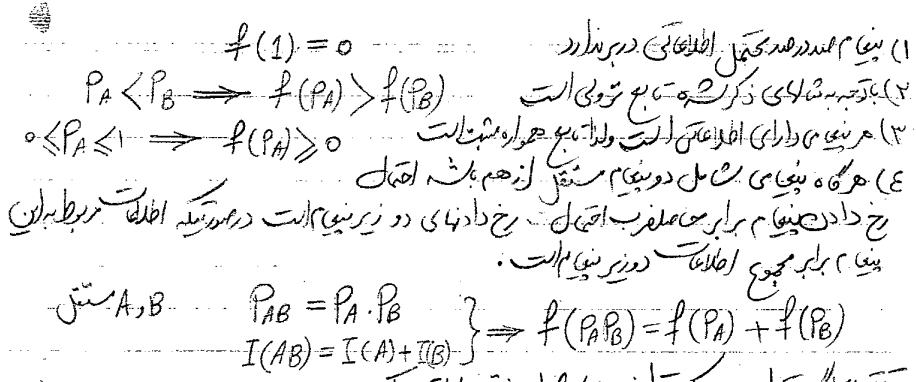 ۱) پیغام صددرصد محتمل اطلاعاتی دربرندارد f(1) = 0
۲) باتوجه به مثالهای ذکر شده تابع نزولی است P_A < P_B ⟹ f(P_A) > f(P_B)
۳) هر پیغامی دارای اطلاعاتی است ولذا تابع همواره مثبت است 0 ≤ P_A ≤ 1 ⟹ f(P_A) ≥ 0
۴) هرگاه پیغامی شامل دو پیغام مستقل از هم باشد احتمال
رخ دادن پیغام برابر حاصلضرب احتمال رخ دادنهای دو زیر پیغام است درصورتیکه اطلاعات مربوط به این
پیغام برابر مجموع اطلاعات دو زیر پیغام است.
A,B مستقل P_AB = P_A . P_B
I(AB) = I(A) + I(B) } ⟹ f(P_A P_B) = f(P_A) + f(P_B)